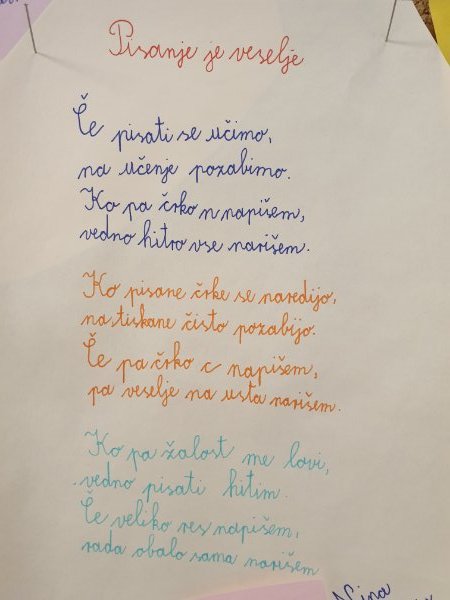 Pisanje je veselje
Če pisati se učimo,
na učenje pozabimo.
Ko pa črko n napišem,
vedno hitro vse narišem.
Ko pisane črke se naredijo,
na tiskane čisto pozabijo.
Če pa črko c napišem,
pa veselje na usta narišem.
Ko pa žalost me lovi,
vedno pisati hitim.
Če veliko res napišem,
rada obalo sama narišem
Nina